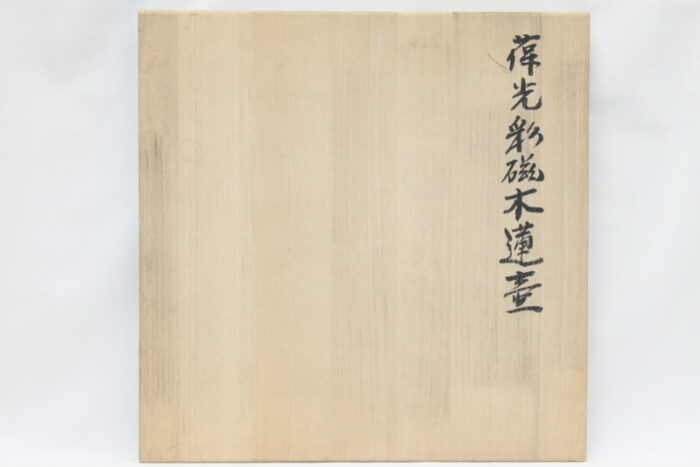 葆光彩磁木蓮壷